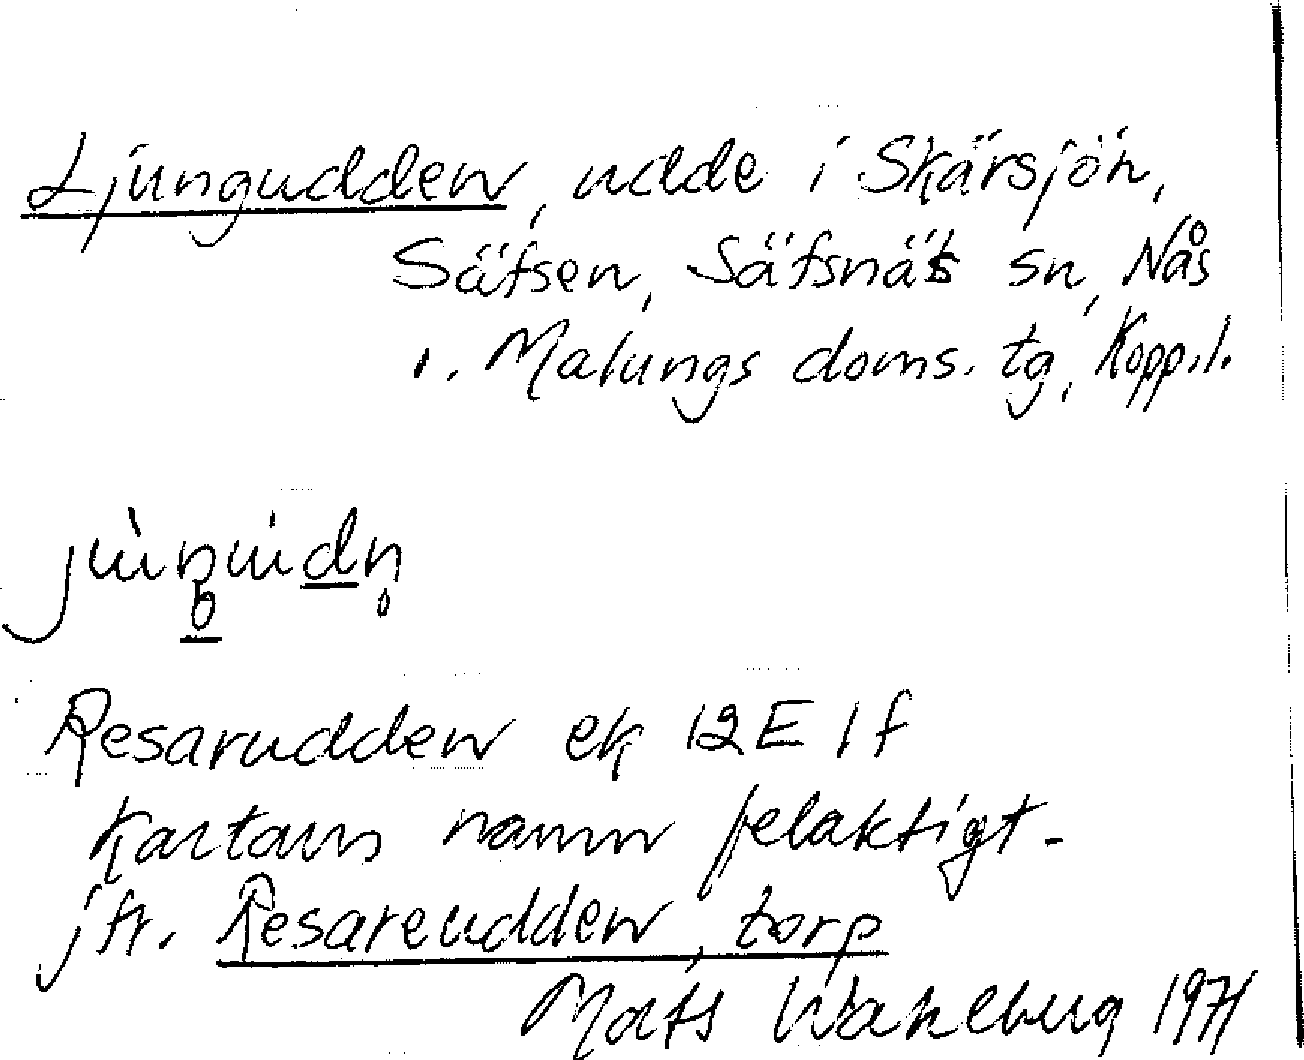 Ljungudden, udde i Skärsjön,
Säfsen, Säfsnäs sn, Nås
o. Malungs doms. tg, Kopp. l.
Resarudden ek 12E 1f
Kartans namn felaktigt.
jfr. Resareudden, torp
Mats Wahlberg 1971